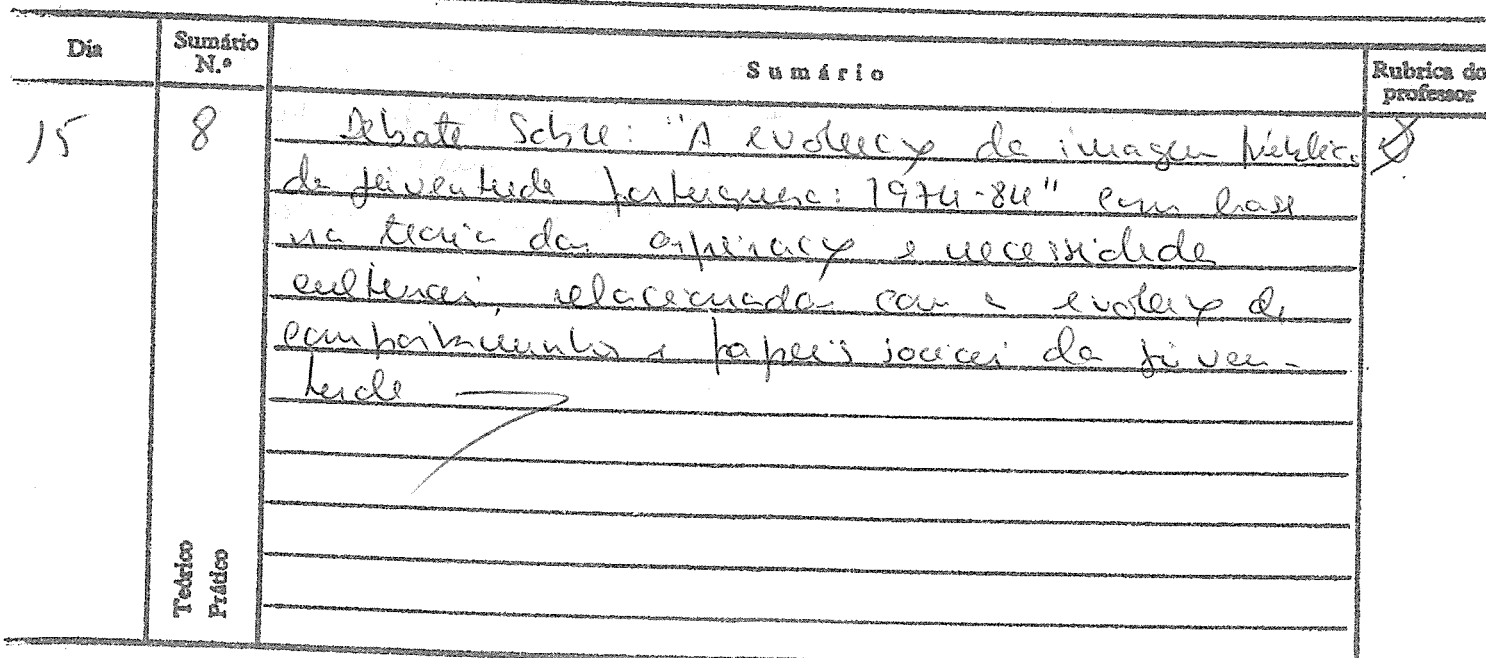 Dia
Sumário N.º
Sumário
Rubrica do professor
15
8
Debate Sobre: "A evolução da imagem pública
da juventude portuguesa: 1974-84" com base
na teoria das aspirações e necessidades
culturais, relacionadas com a evolução de
comportamentos e papeis sociais da juven-
tude
Teórico
Prático